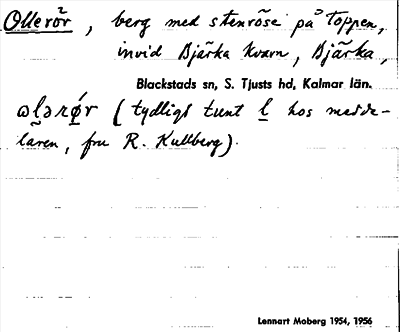 Ollerör, berg med stenröse på toppen,
invid Bjärka kvarn, Bjärka,
Blackstads sn, S. Tjusts hd, Kalmar län.
(tydligt tunt l hos medde-
laren, fru R. Kullberg).
Lennart Moberg 1954, 1956